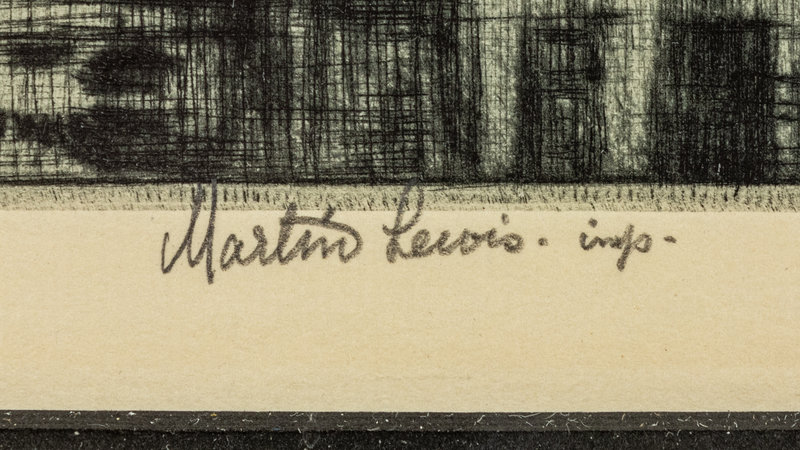 Martin Lewis. imp-